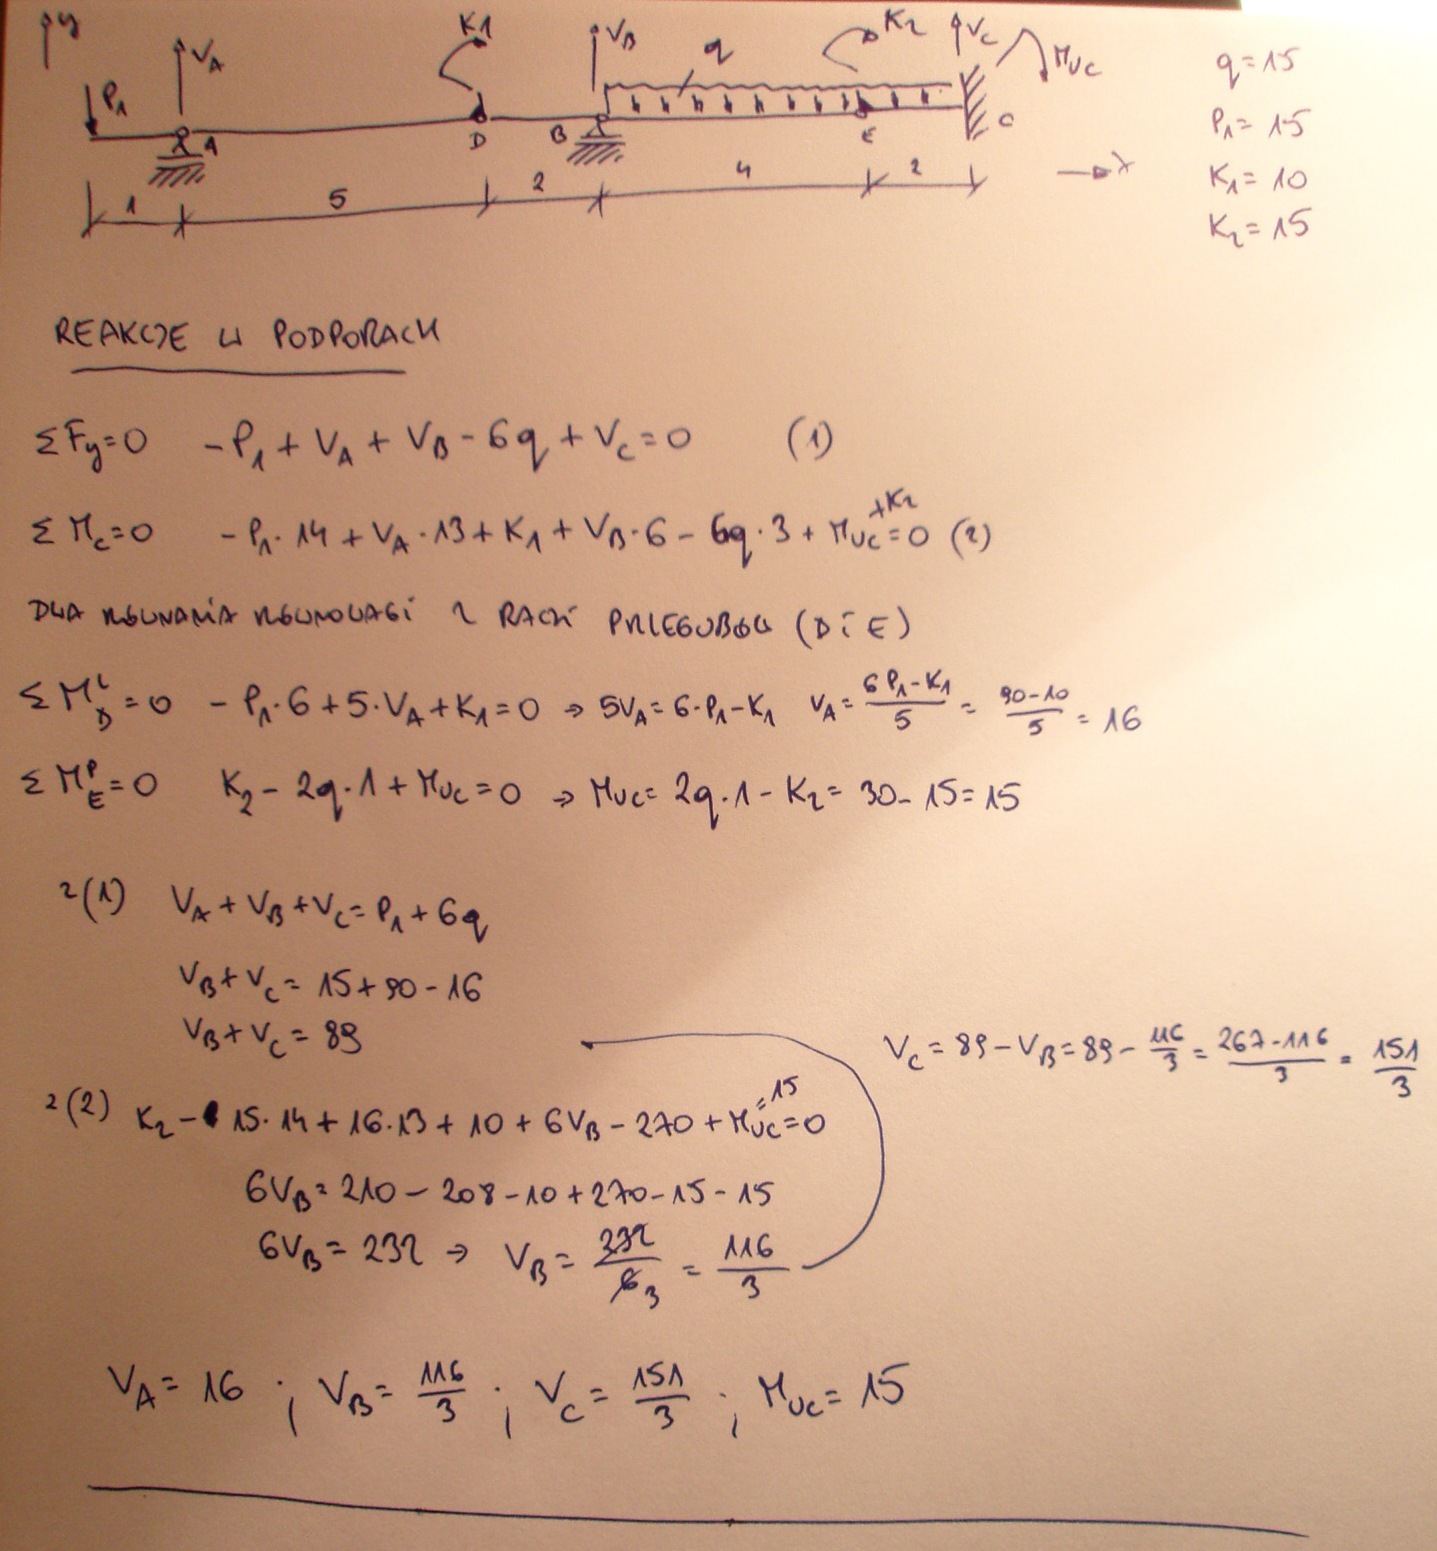 y
P₁ V_A K1 V_B q K₂ V_C M_UC
A D B E C
1 5 2 4 2 x
q=15
P₁=15
K₁=10
K₂=15
REAKCJE W PODPORACH
ΣFy=0 -P₁+V_A+V_B-6q+V_C=0 (1)
ΣM_C=0 -P₁·14+V_A·13+K₁+V_B·6-6q·3+M_UC+K₂=0 (2)
DWA RÓWNANIA RÓWNOWAGI Z RACJI PRZEGUBÓW (D i E)
ΣM_D^L=0 -P₁·6+5·V_A+K₁=0 → 5V_A=6·P₁-K₁ V_A=(6P₁-K₁)/5=(90-10)/5=16
ΣM_E^P=0 K₂-2q·1+M_UC=0 → M_UC=2q·1-K₂=30-15=15
z(1) V_A+V_B+V_C=P₁+6q
V_B+V_C=15+90-16
V_B+V_C=89
V_C=89-V_B=89-116/3=(267-116)/3=151/3
z(2) K₂-15·14+16·13+10+6V_B-270+M_UC=0
=15
6V_B=210-208-10+270-15-15
6V_B=232 → V_B=232/6 3=116/3
V_A=16 ; V_B=116/3 ; V_C=151/3 ; M_UC=15